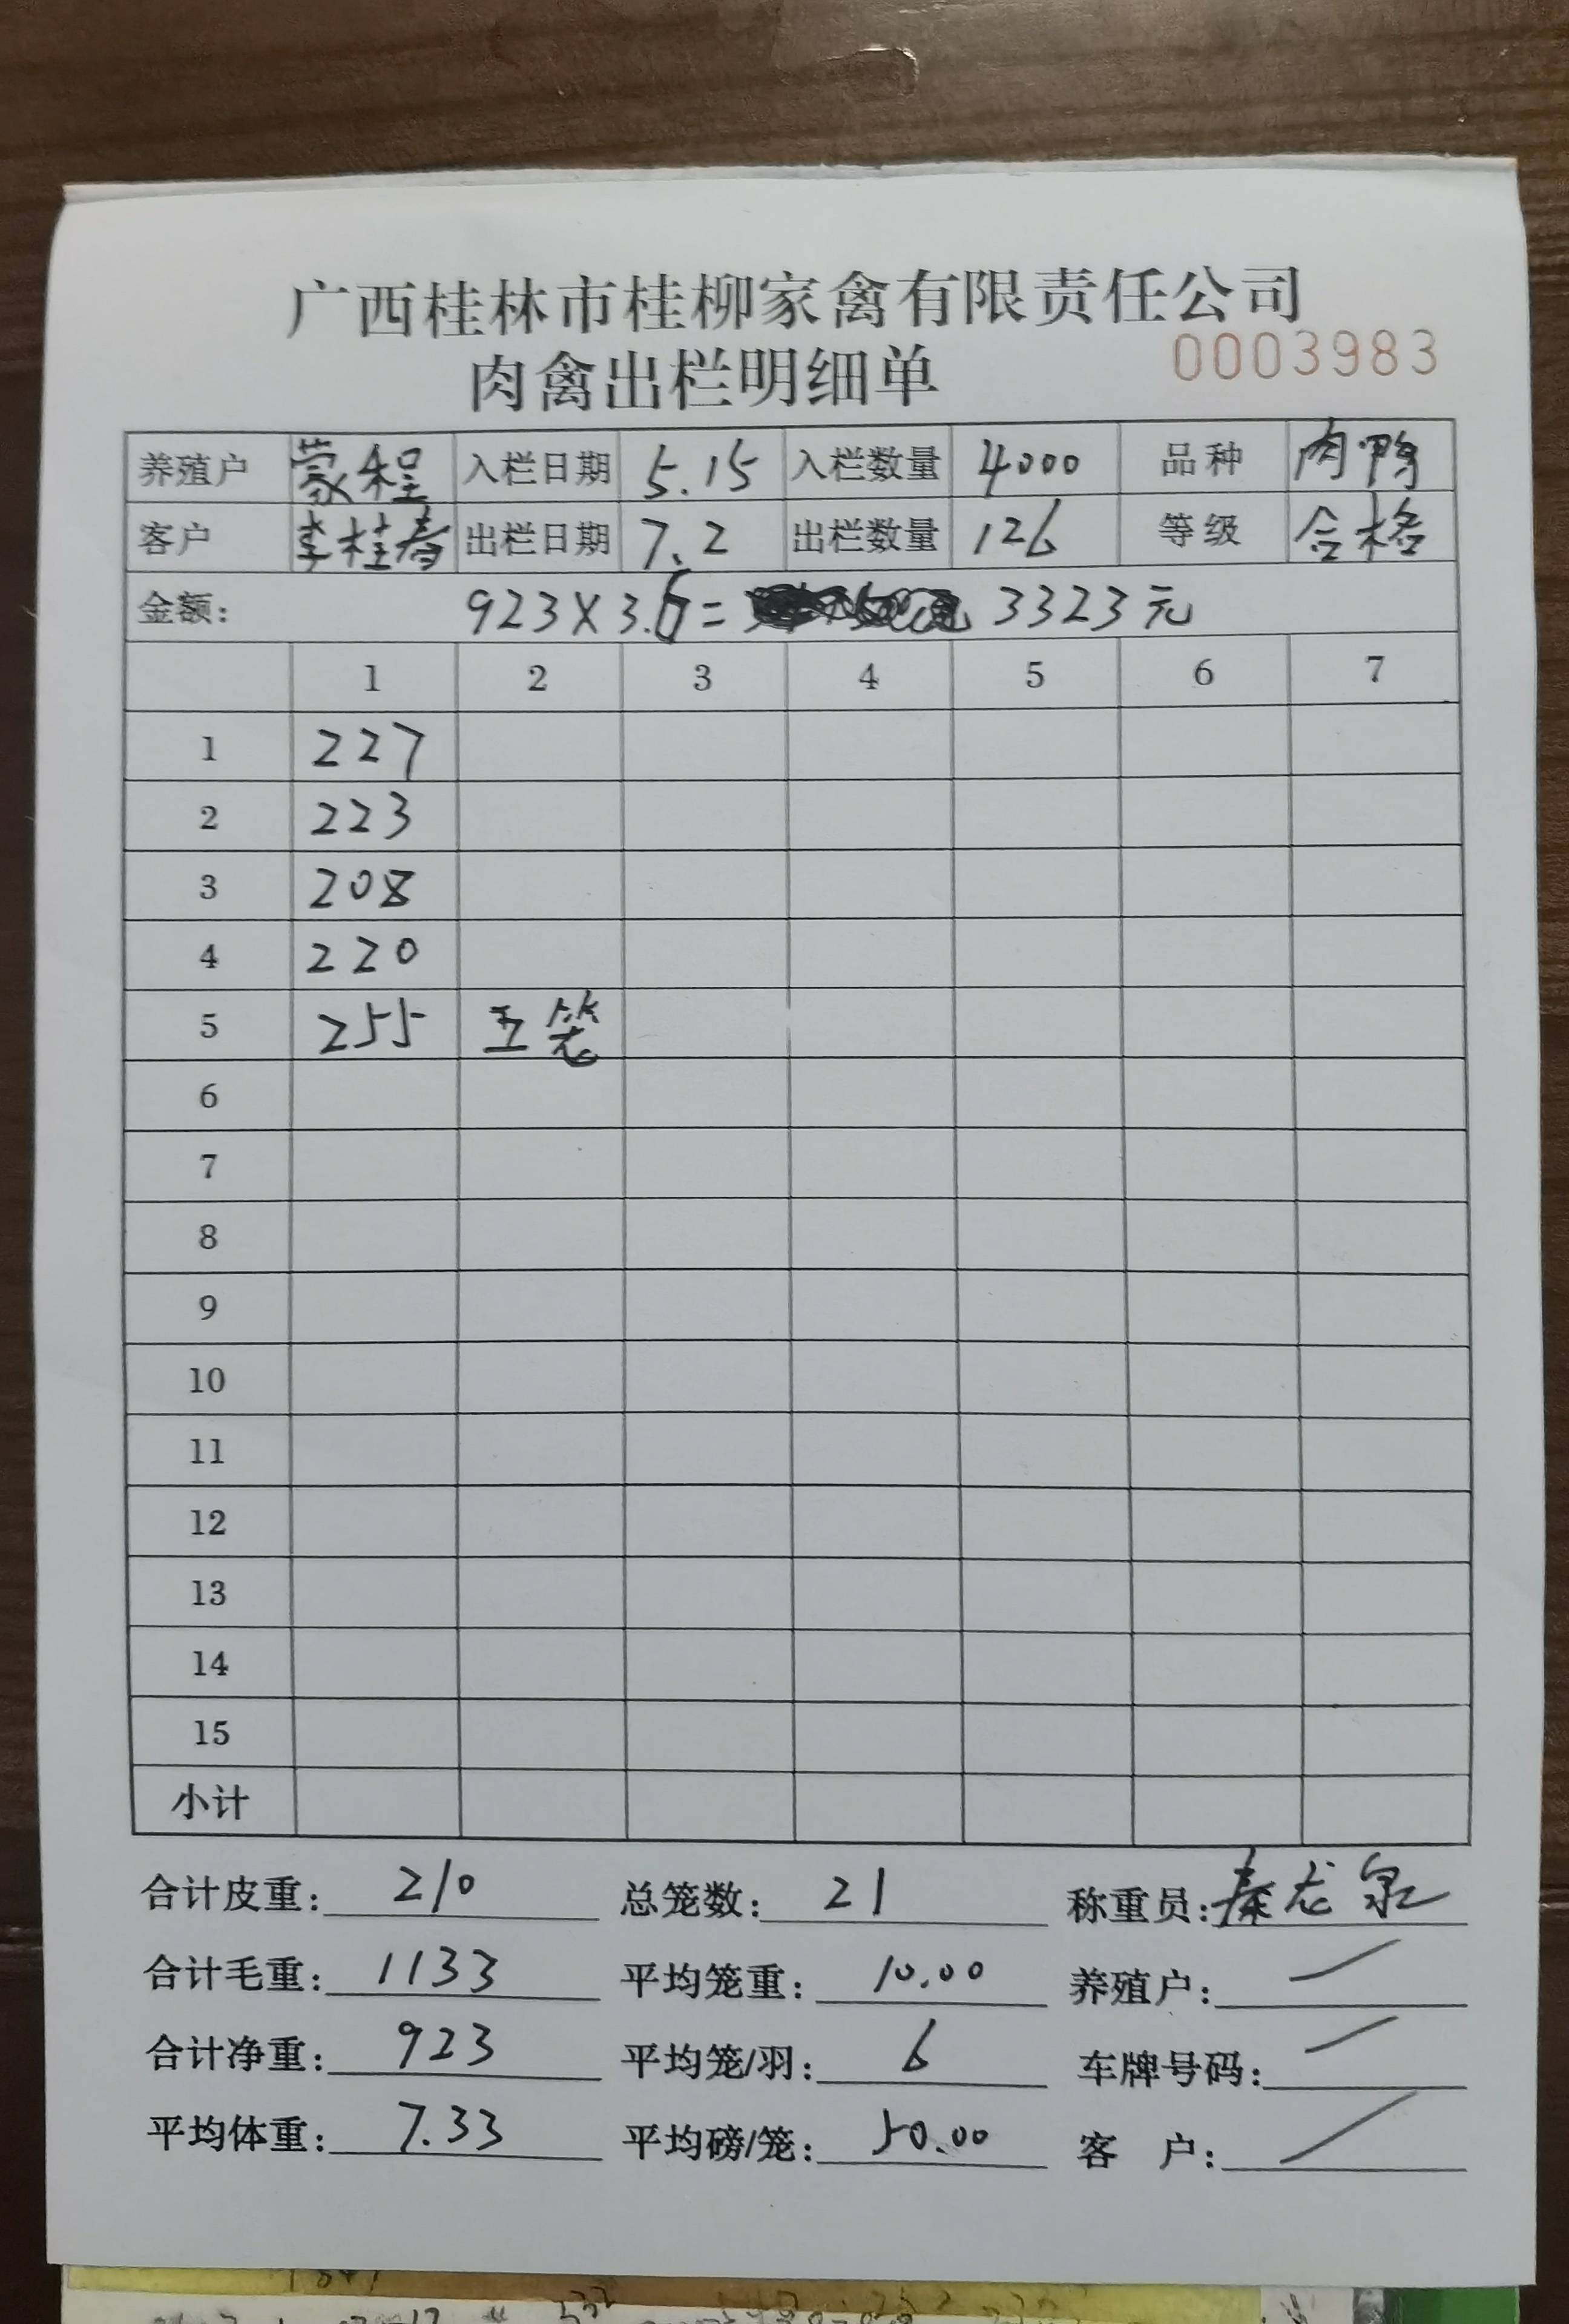 广西桂林市桂柳家禽有限责任公司
肉禽出栏明细单 0003983
养殖户 蒙程 入栏日期 5.15 入栏数量 4000 品种 肉鸭
客户 李桂春 出栏日期 7.2 出栏数量 126 等级 合格
金额: 923X3.6= 3323元
1 2 3 4 5 6 7
1 227
2 223
3 208
4 220
5 255 五笼
6
7
8
9
10
11
12
13
14
15
小计
合计皮重: 210 总笼数: 21 称重员: 秦龙泉
合计毛重: 1133 平均笼重: 10.00 养殖户:
合计净重: 923 平均笼/羽: 6 车牌号码:
平均体重: 7.33 平均磅/笼: 50.00 客 户: